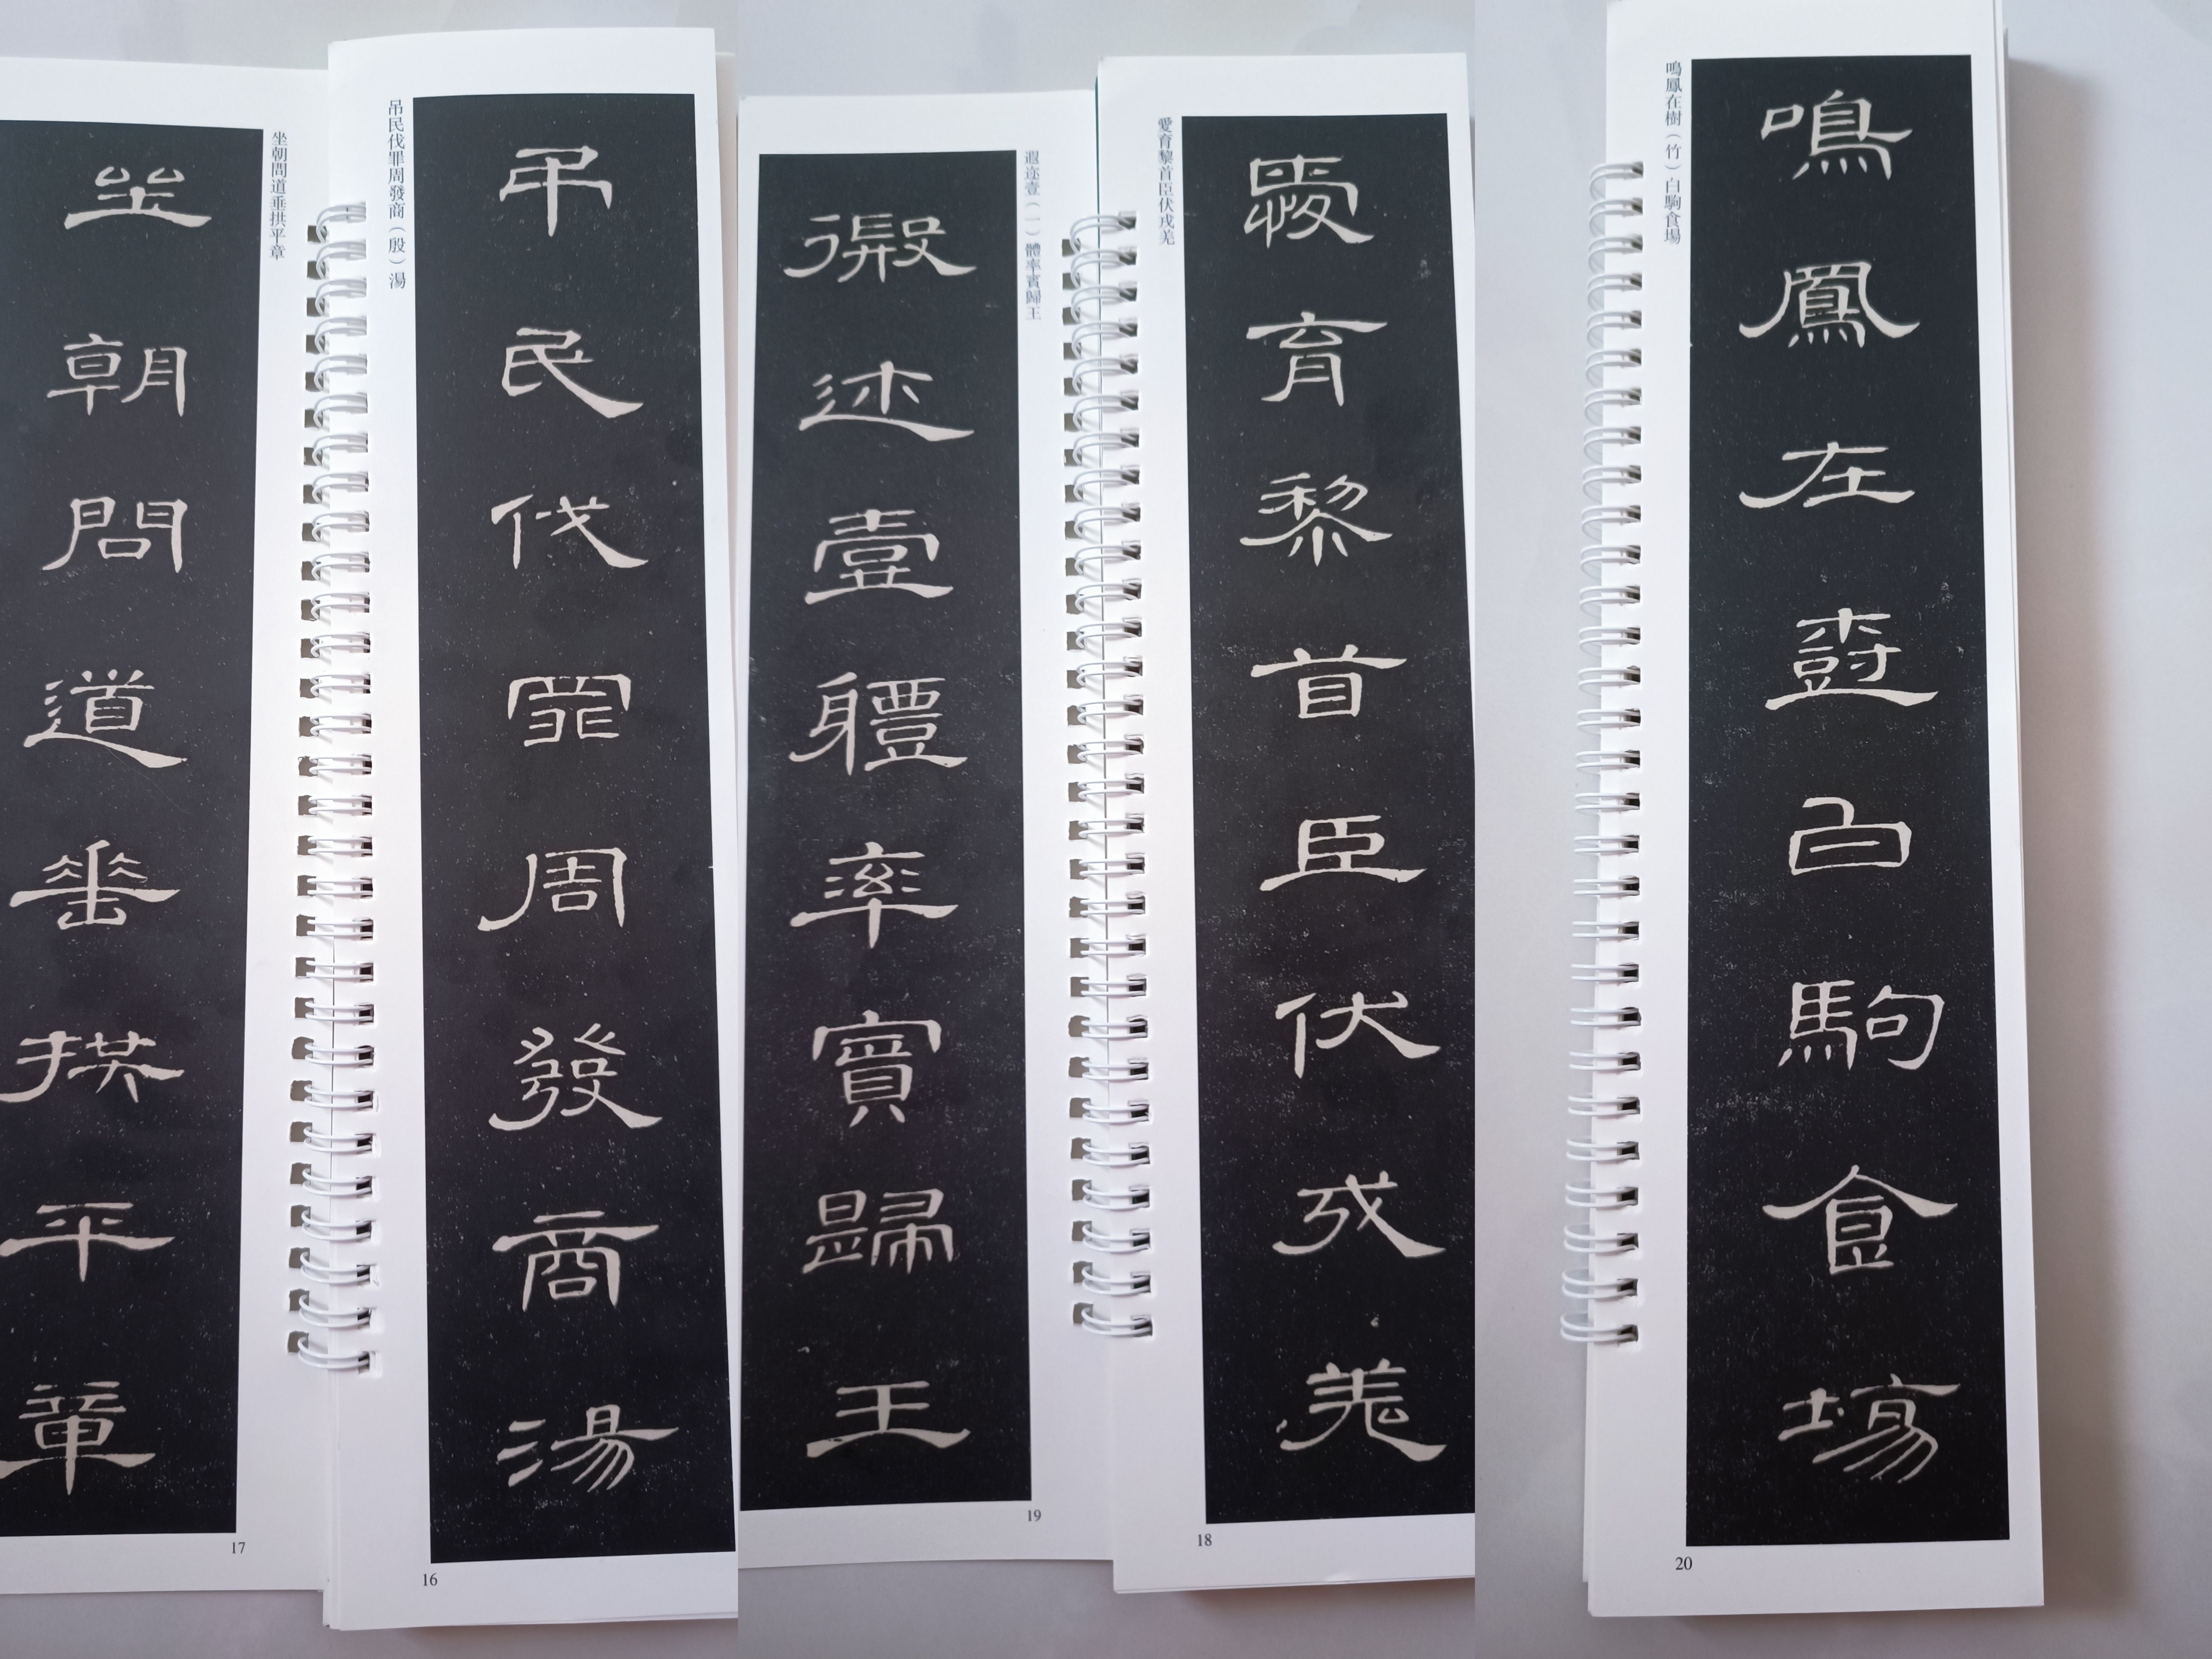 吊民伐罪周發商（殷）湯
弔民伐罪周發商湯
16
坐朝問道垂拱平章
坐朝問道垂拱平章
17
愛育黎首臣伏戎羌
愛育黎首臣伏戎羌
18
遐迩壹（一）體率賓歸王
徦迩壹軆率賓歸王
19
鳴鳳在樹（竹）白駒食場
鳴鳳在樹白駒食場
20